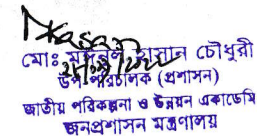 মোঃ হাসান চৌধুরী
উপ পরিচালক (প্রশাসন)
জাতীয় পরিকল্পনা ও উন্নয়ন একাডেমি
জনপ্রশাসন মন্ত্রণালয়